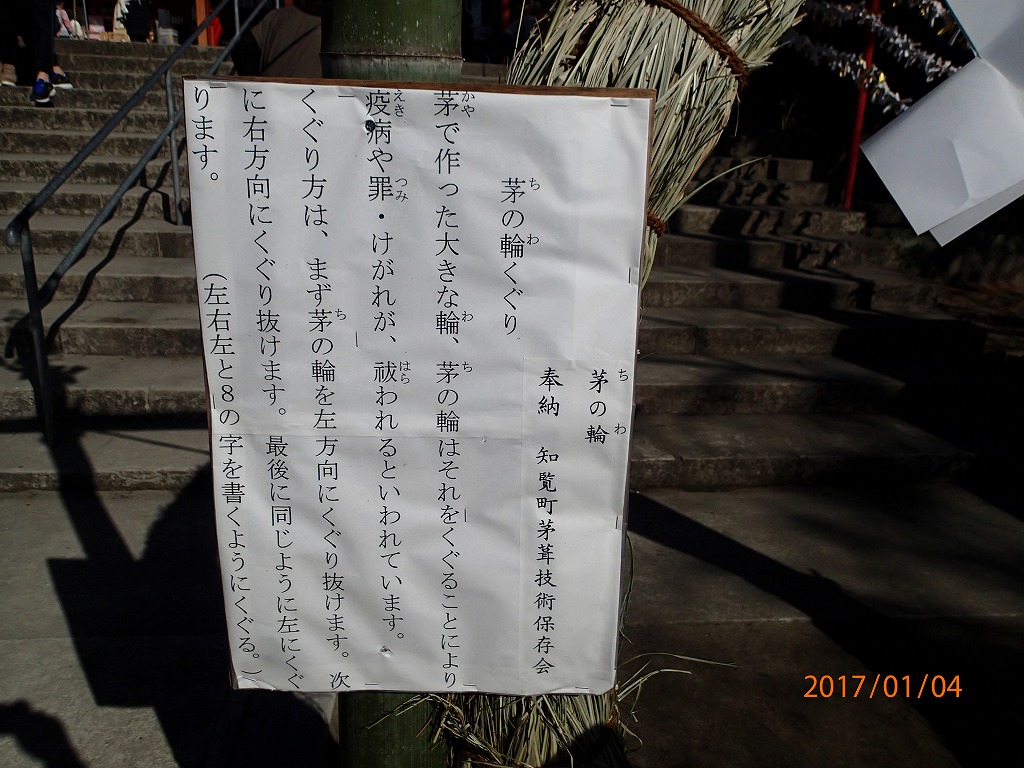 茅の輪
奉納　知覧町茅葺技術保存会
茅の輪くぐり
茅で作った大きな輪、茅の輪はそれをくぐることにより
疫病や罪・けがれが、祓われるといわれています。
くぐり方は、まず茅の輪を左方向にくぐり抜けます。次
に右方向にくぐり抜けます。最後に同じように左にくぐ
ります。　（左右左と８の字を書くようにくぐる。）
2017/01/04